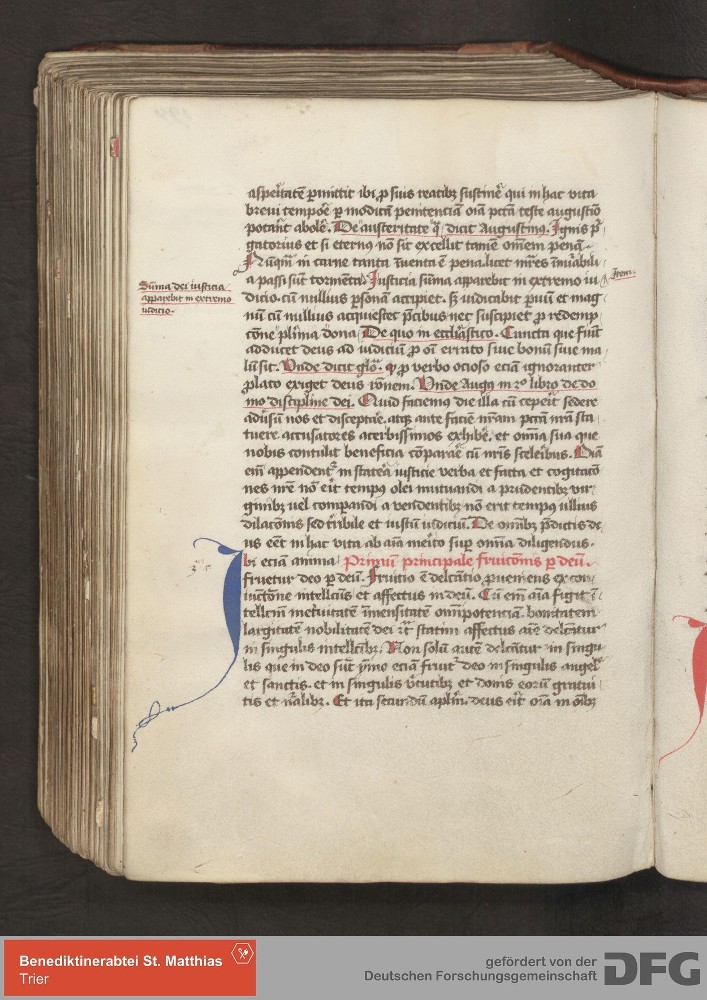 asperitatē ꝑmittit ibi ꝓ suis reatibꝫ sustinē qui in hac vita
brevi tempore ꝑ modicā penitenciā oīa pctā teste augustīo
potāīt abolē. De austeritate qͣ dicit Augustinꝰ. Ignis pͬ
gatorius et si eternꝰ nō sit excellit tamē omēm penā.
Nūqm̄ in carne tanta īuenta ē pena. licet mr̄es īmirabili
a passi sūt tormēta. Justicia sūma apparebit in extremo iu
Item.
Sūma dei iusticia
apparebit in extremo
iudicio.
dicio. cū nullius ꝑsonā accipiet. sꝫ iudicabit ꝑuū et mag
nū cū nullius acquiescet p̄cibus nec suscipiet ꝓ redemp
cōne pl̄ima dona. De quo in eccl̄iastico. Cuncta que fiūt
adducet deus ad iudiciū ꝓ oī errato siue bonū siue ma
lū sit. Unde dicit glo. ꝙ ꝓ verbo ocioso eciā ignoranter
ꝓlato exiget deus rōnem. Unde Augꝰ in 2º libro de do
mo discipline dei. Quid faciemus die illa cū ceperit sedere
aduersū nos et disceptare. atqꝫ ante faciē nr̄am pctā nr̄a sta
tuere. accusatores acerbissimos exhibē. et om̄ia sua que
nobis contulit beneficia cōparare cū nr̄is sceleribus. Etiā
em̄ appendentr̄ in statera iusticie verba et facta et cogitacō
nes nr̄e nō erit tempꝰ olei mutuandi a prudentibꝫ vir
ginibꝫ uel comparandi a vendentibꝫ nō erit tempꝰ ullius
dilacōnis sed t̄ribile et iustū iudiciū. De om̄ibꝫ p̄dictis de
us eēt in hac vita ab aīa merito suꝑ om̄ia diligendus.
Ibi eciam anima Primū principale fruicōnis ꝑ deū.
fruetur deo ꝑ deū. Fruitio ē delc̄atio ꝓueniens ex con
iunctōne intellc̄us et affectus in deū. Cū em̄ aīa figit ī
tellc̄m in etuitatē īmensitatē om̄ipotenciā bonitatem
largitatē nobilitatē dei &c̄ statim affectus aīe delc̄atur
in singulis intellc̄ibꝫ. Non solū autē delc̄atur in singu
lis que in deo sūt ymo eciā fruitr̄ deo in singulis angel
et sanctis. et in singulis v̄tutibꝫ et donis eorū gratui
tis et nr̄alibꝫ. Et ita secundū apl̄m. deus erit oīa in oībꝫ
Benediktinerabtei St. Matthias
Trier
gefördert von der
Deutschen Forschungsgemeinschaft
DFG